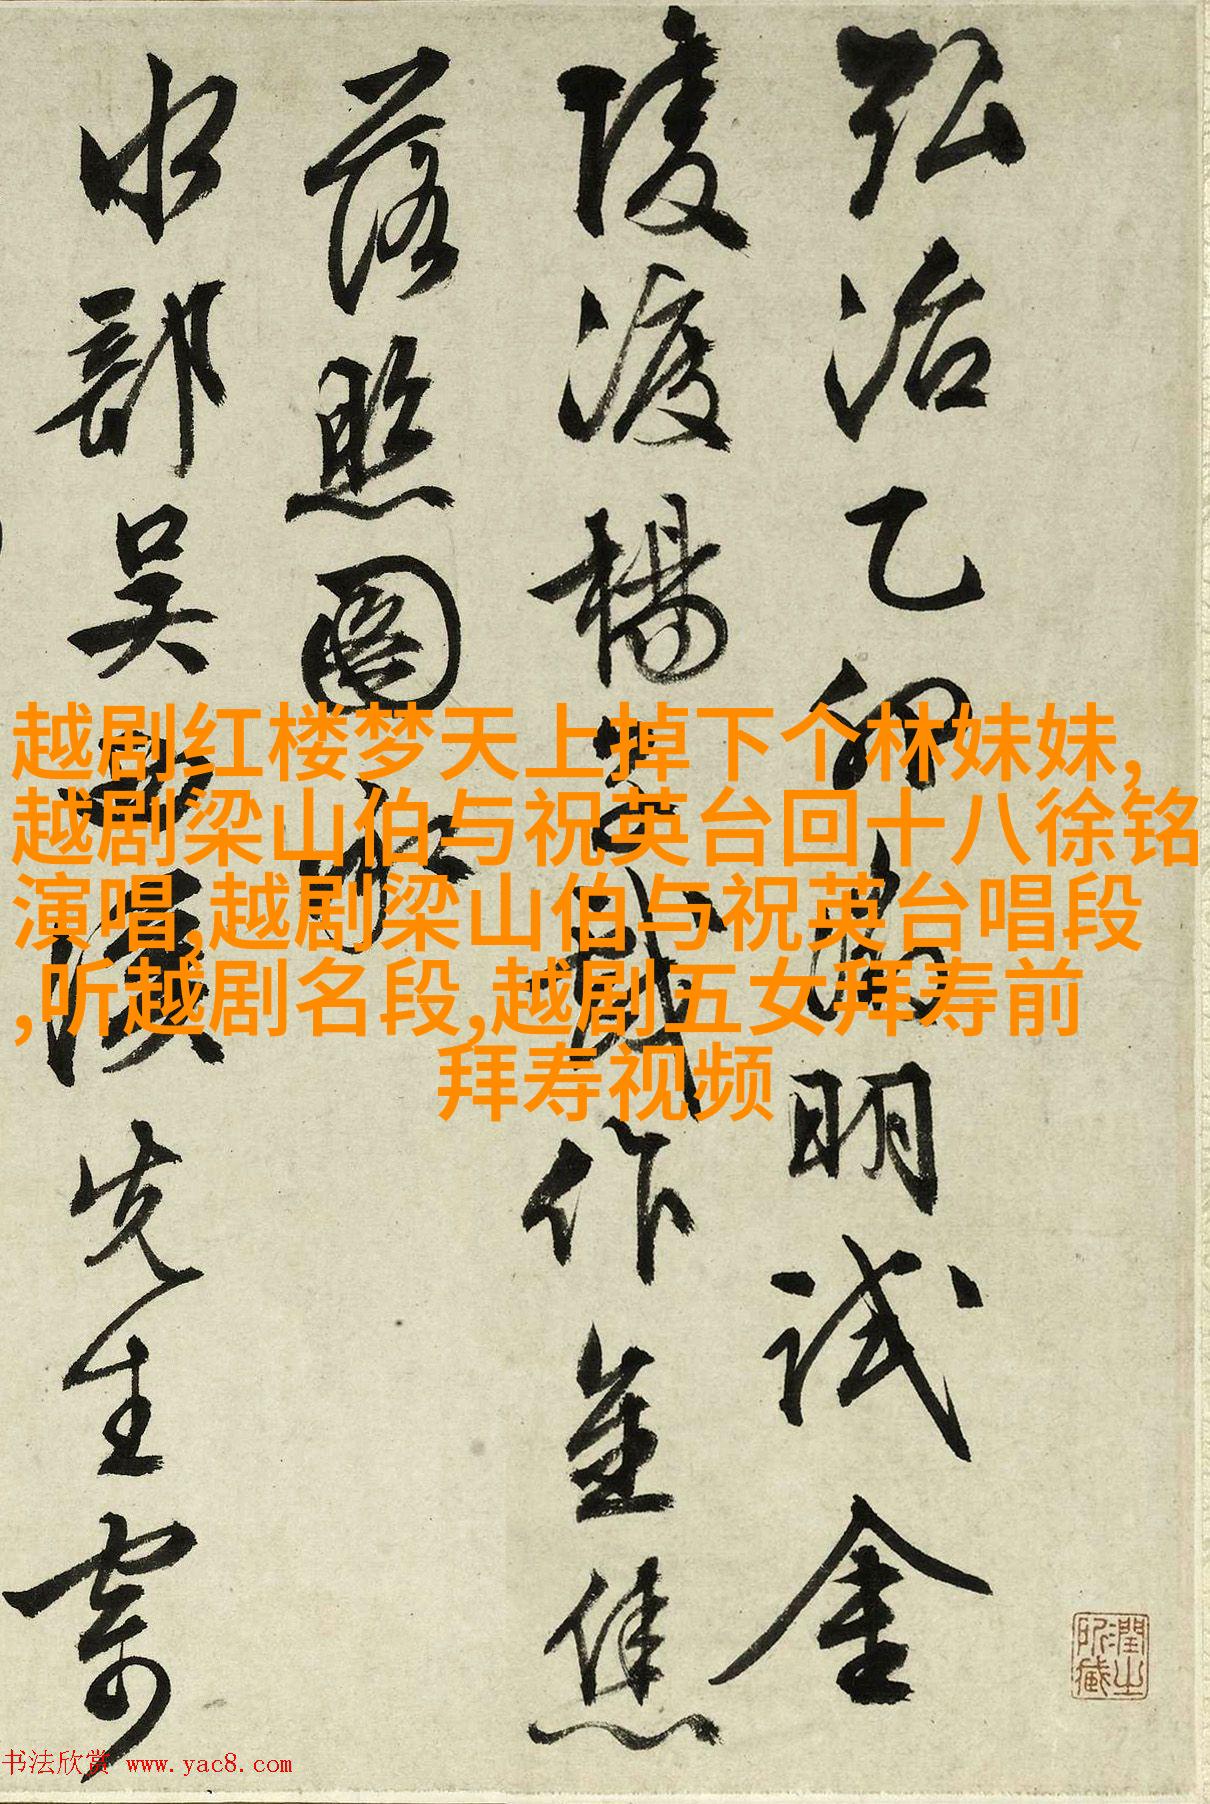 弘治乙卯徵明試金
陵渡楊子戲作金焦
落照圖
水部吳先生寄
越剧红楼梦天上掉下个林妹妹,
越剧梁山伯与祝英台回十八徐铭
演唱,越剧梁山伯与祝英台唱段
,听越剧名段,越剧五女拜寿前
拜寿视频
潤之所藏
书法欣赏 www.yac8.com